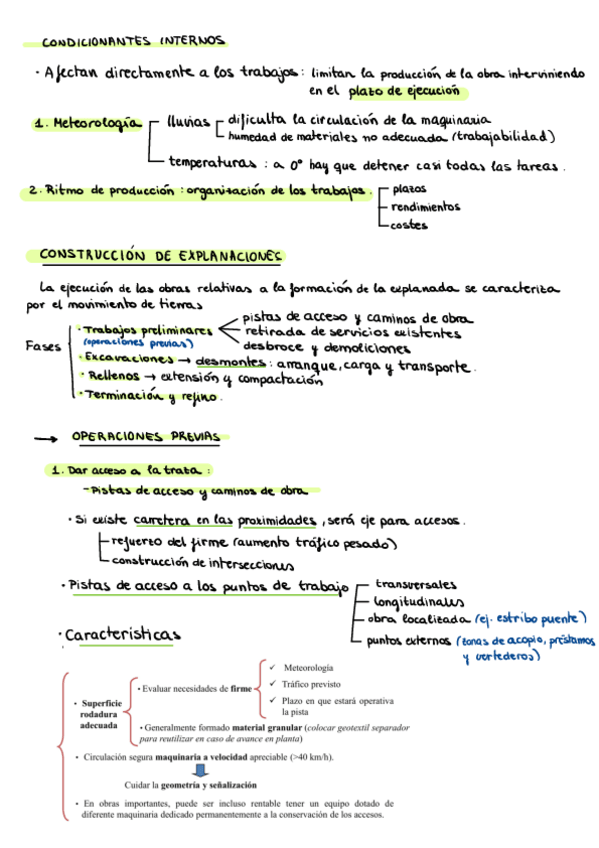 CONDICIONANTES INTERNOS
· Afectan directamente a los trabajos: limitan la producción de la obra interviniendo
en el plazo de ejecución
1. Meteorología
lluvias
dificulta la circulación de la maquinaria
humedad de materiales no adecuada (trabajabilidad)
temperaturas : a 0° hay que detener casi todas las tareas.
2. Ritmo de producción : organización de los trabajos.
plazos
rendimientos
costes
CONSTRUCCIÓN DE EXPLANACIONES
La ejecución de las obras relativas a la formación de la explanada se caracteriza
por el movimiento de tierras
Fases
· Trabajos preliminares
(operaciones previas)
pistas de acceso y caminos de obra
retirada de servicios existentes
desbroce y demoliciones
· Excavaciones → desmontes: arranque, carga y transporte.
· Rellenos → extensión y compactación
· Terminación y refino.
→ OPERACIONES PREVIAS
1. Dar acceso a la traza :
- Pistas de acceso y caminos de obra
· Si existe carretera en las proximidades, será eje para accesos.
refuerzo del firme (aumento tráfico pesado)
construcción de intersecciones
· Pistas de acceso a los puntos de trabajo
transversales
longitudinales
obra localizada (ej. estribo puente)
puntos externos (zonas de acopio, préstamos
y vertederos)
· Características
• Superficie
rodadura
adecuada
• Evaluar necesidades de firme
✓ Meteorología
✓ Tráfico previsto
✓ Plazo en que estará operativa
la pista
• Generalmente formado material granular (colocar geotextil separador
para reutilizar en caso de avance en planta)
• Circulación segura maquinaria a velocidad apreciable (>40 km/h).
Cuidar la geometría y señalización
• En obras importantes, puede ser incluso rentable tener un equipo dotado de
diferente maquinaria dedicado permanentemente a la conservación de los accesos.